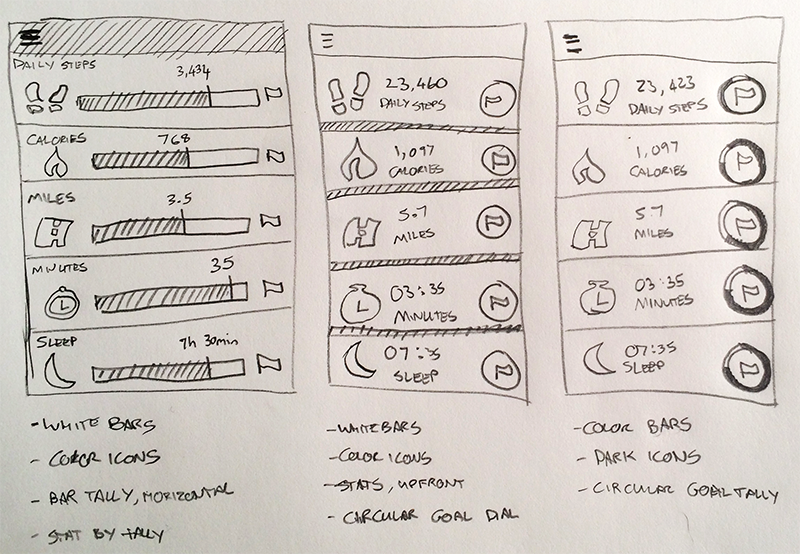 DAILY STEPS
3,434
CALORIES
768
MILES
3.5
MINUTES
35
SLEEP
7h 30min
- WHITE BARS
- COLOR ICONS
- BAR TALLY, HORIZONTAL
- STAT BY TALLY
23,460
DAILY STEPS
1,097
CALORIES
5.7
MILES
03:35
MINUTES
07:35
SLEEP
- WHITE BARS
- COLOR ICONS
- STATS, UPFRONT
- CIRCULAR GOAL DIAL
23,423
DAILY STEPS
1,097
CALORIES
5.7
MILES
03:35
MINUTES
07:35
SLEEP
- COLOR BARS
- DARK ICONS
- CIRCULAR GOAL TALLY